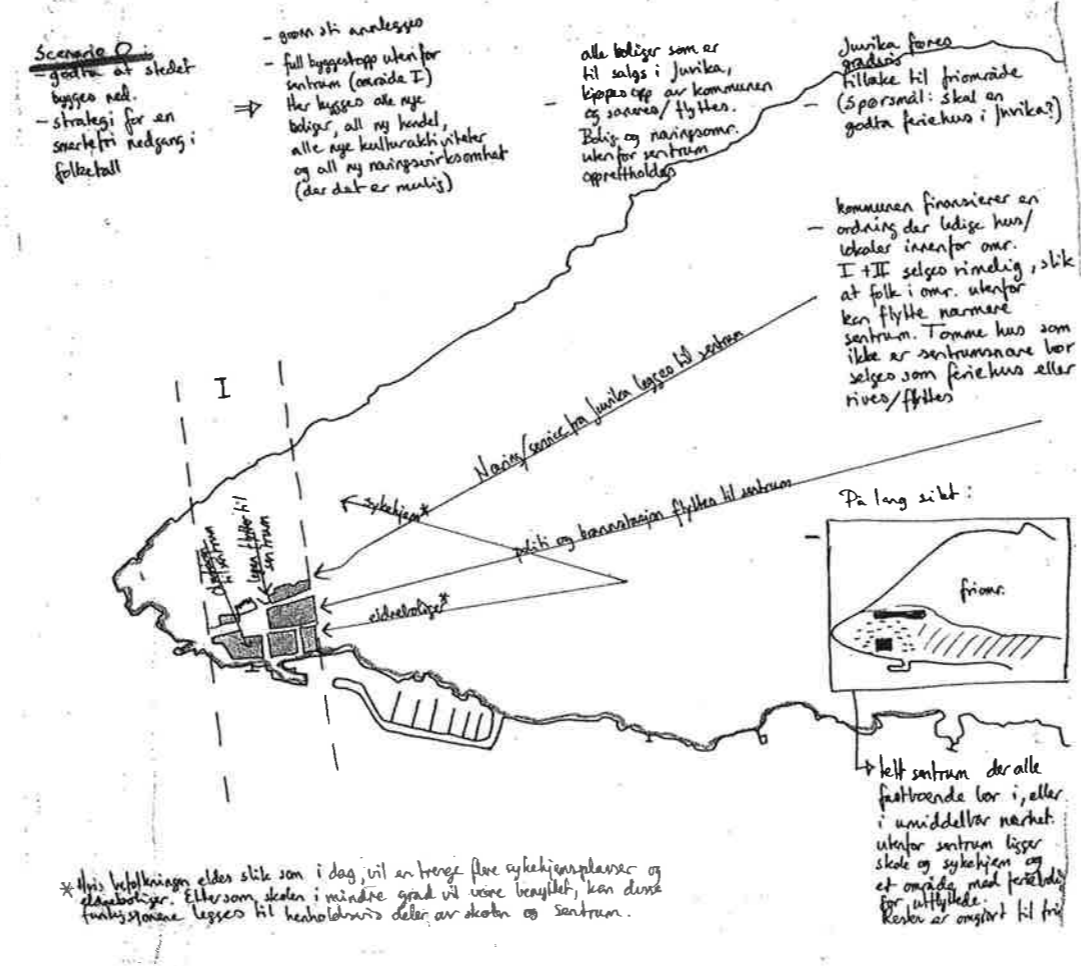 Scenario 0:
- godta at stedet
bygges ned.
- strategi for en
smertefri nedgang i
folketall
⇒
- grønn sti anlegges
- full byggestopp utenfor
sentrum (område I)
Her bygges alle nye
boliger, all ny handel,
alle nye kulturaktiviteter
og all ny næringsvirksomhet
(der det er mulig)
- alle boliger som er
til salgs i Juvika,
kjøpes opp av kommunen
og saneres/flyttes.
Bolig og næringsomr.
utenfor sentrum
opprettholdes
Juvika føres
gradvis
tilbake til friområde
(Spørsmål: skal en
godta feriehus i Juvika?)
- kommunen finansierer en
ordning der ledige hus/
lokaler innenfor omr.
I + II selges rimelig, slik
at folk i omr. utenfor
kan flytte nærmere
sentrum. Tomme hus som
ikke er sentrumsnære bør
selges som feriehus eller
rives/flyttes
I
Næring/service fra Juvika legges til sentrum
sykehjem*
politi og brannstasjon flyttes til sentrum
eldreboliger*
til sentrum
legen flytter til
sentrum
På lang sikt:
-
friomr.
tett sentrum der alle
fastboende bor i, eller
i umiddelbar nærhet.
utenfor sentrum ligger
skole og sykehjem og
et område med feriebolig
for utflyttede.
Resten er omgjort til fri
* Hvis befolkningen eldes slik som i dag, vil en trenge flere sykehjemsplasser og
eldreboliger. Ettersom skolen i mindre grad vil være benyttet, kan disse
funksjonene legges til henholdsvis deler av skolen og sentrum.